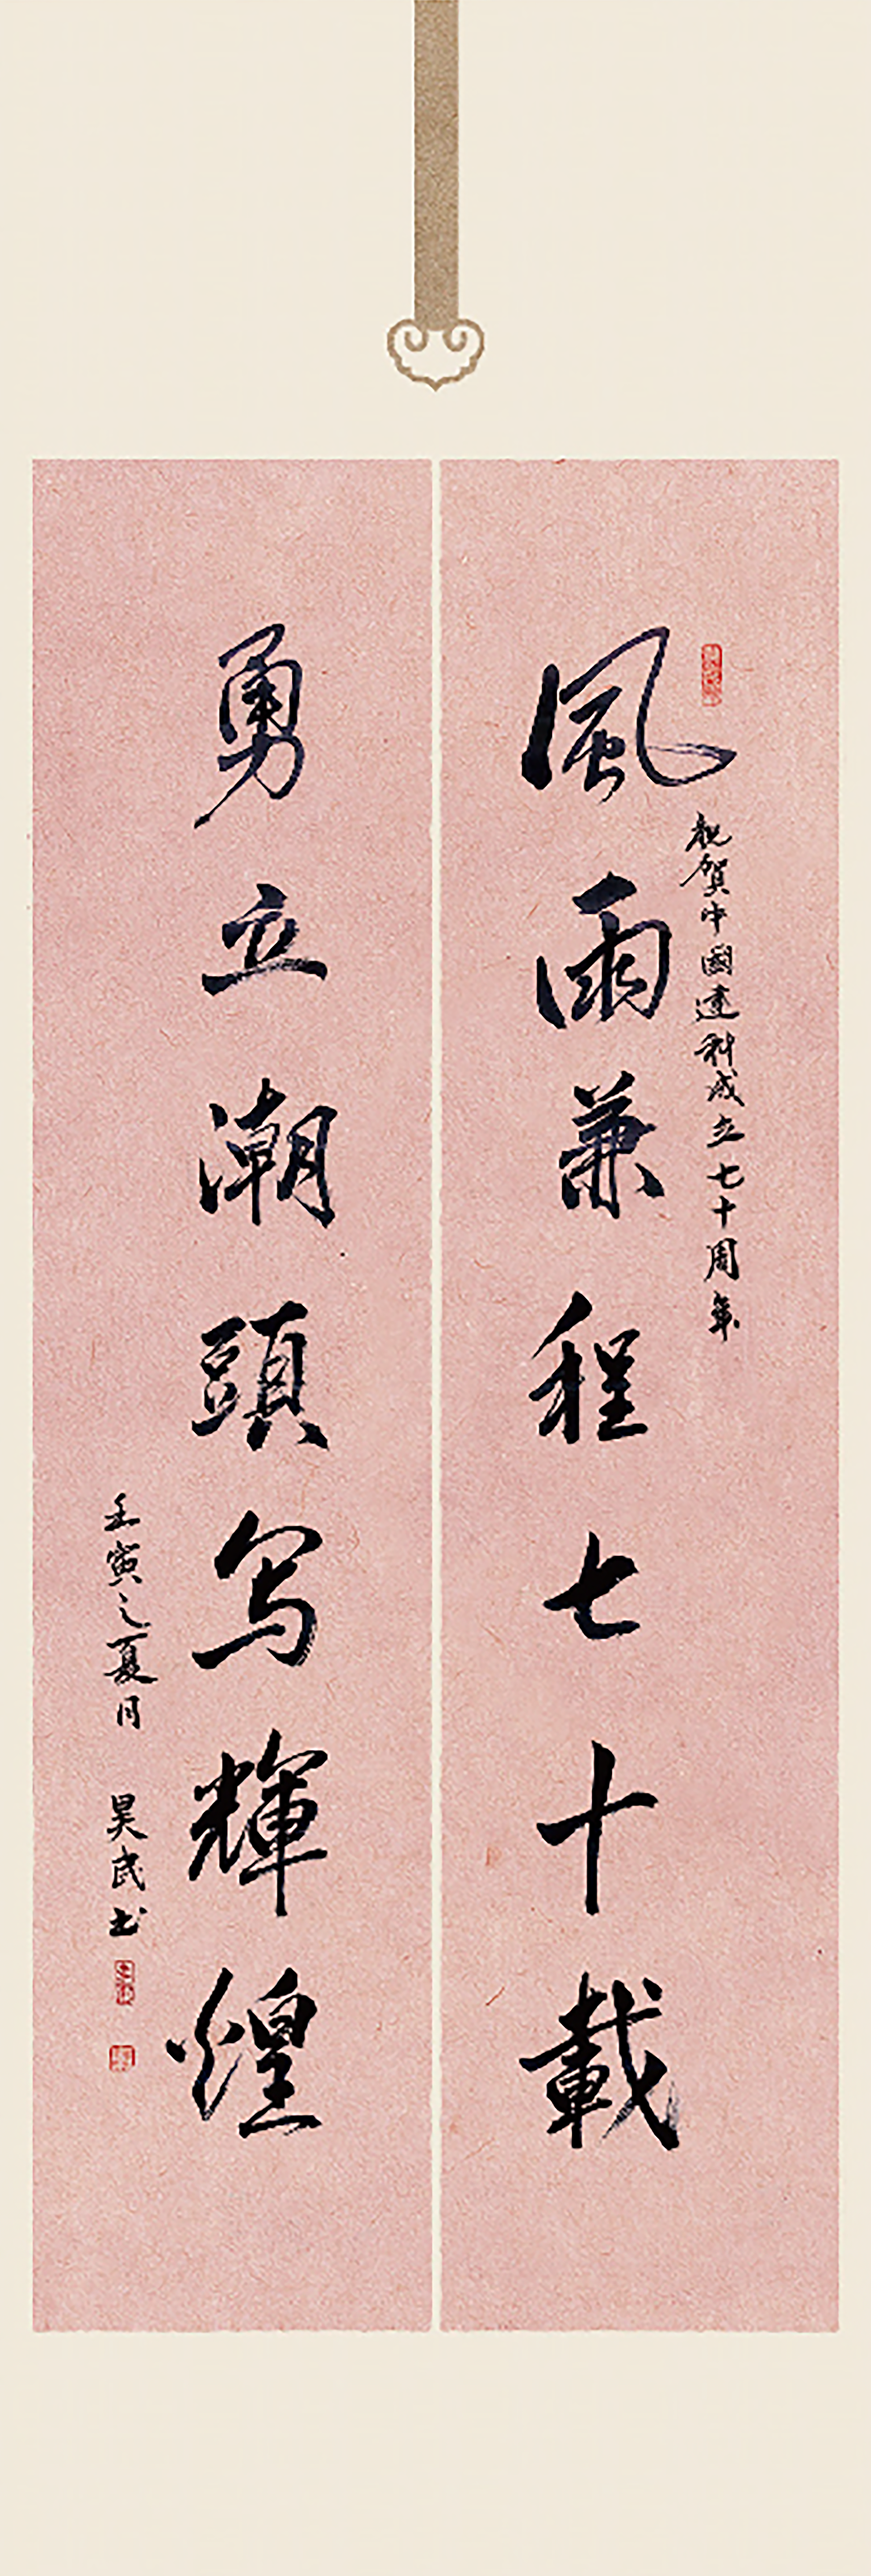 風雨兼程七十載
祝賀中國建科成立七十周年
勇立潮頭写輝煌
壬寅之夏月 昊武书